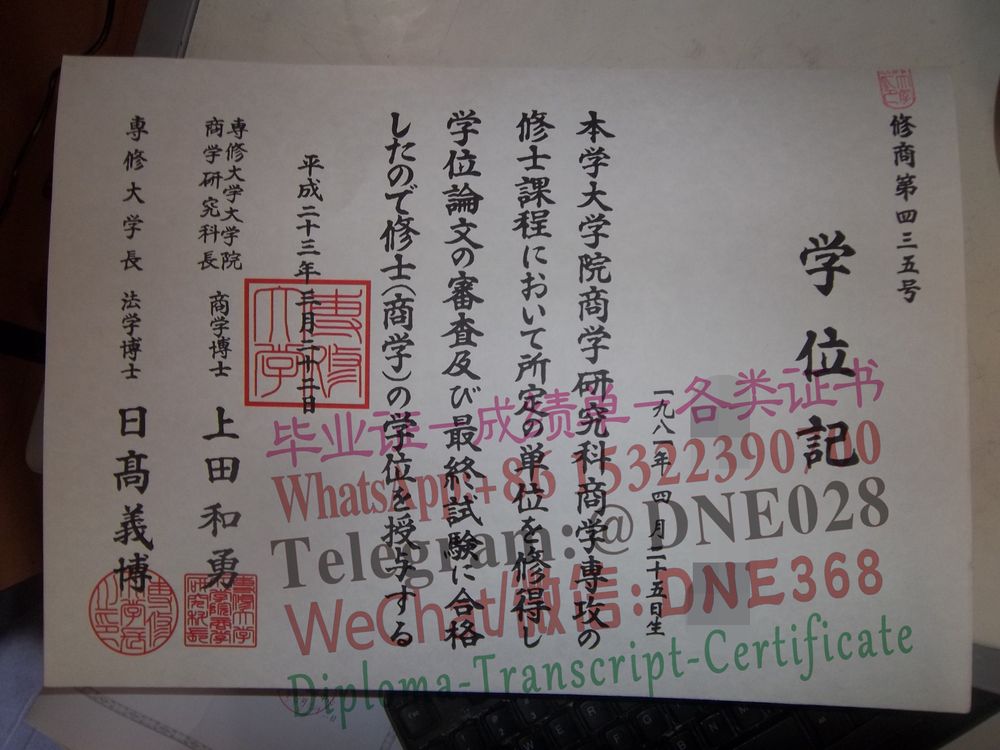 修商第四三五号
学位記
一九八一年 四 月二十五日生
本学大学院商学研究科商学専攻の
修士課程において所定の単位を修得し
学位論文の審査及び最終試験に合格
したので修士(商学)の学位を授与する
平成二十三年三月二十二日
専修大学大学院
商学研究科長 商学博士 上田和勇
専修大学長 法学博士 日髙義博
毕业证–成绩单–各类证书
WhatsApp:+86
Telegram:@DNE028
WeChat/微信:DNE368
Diploma-Transcript-Certificate